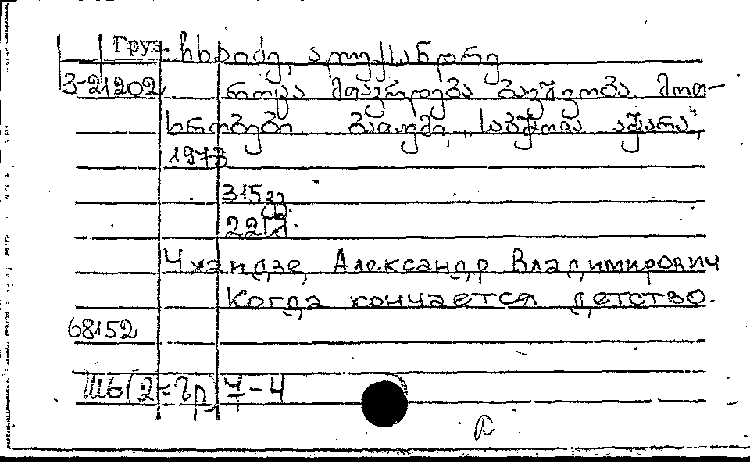 Груз. ჩხაიძე, ალექსანდრე
3-21202 როცა მთავრდება ბავშვობა. მოთ-
ხრობები ბათუმი, „საბჭოთა აჭარა",
1973
315 გვ
22
Чхаидзе, Александр Владимирович
Когда кончается детство.
68152
Шб(2=Гр) 7-4